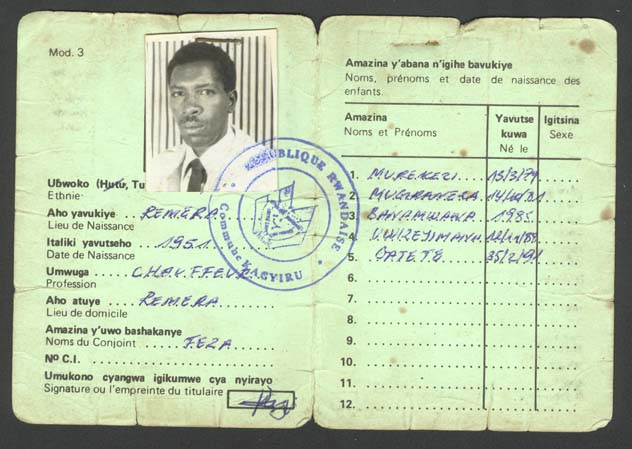 Mod. 3
Ubwoko (Hutu, Tu
Ethnie
Aho yavukiye REMERA
Lieu de Naissance
Italiki yavutseho 1951.
Date de Naissance
Umwuga CHAUFFEUR
Profession
Aho atuye REMERA
Lieu de domicile
Amazina y'uwo bashakanye
Noms du Conjoint FEZA
No C.I.
Umukono cyangwa igikumwe cya nyirayo
Signature ou l'empreinte du titulaire
REPUBLIQUE RWANDAISE
Commune KACYIRU
Amazina y'abana n'igihe bavukiye
Noms, prénoms et date de naissance des
enfants.
Amazina Yavutse Igitsina
Noms et Prénoms kuwa Sexe
Né le
1. MUREKEZI 15/3/79
2. MUGIRANEZA
3. 1985
4. UWIZEYIMANA
5. GATETE
6.
7.
8.
9.
10.
11.
12.